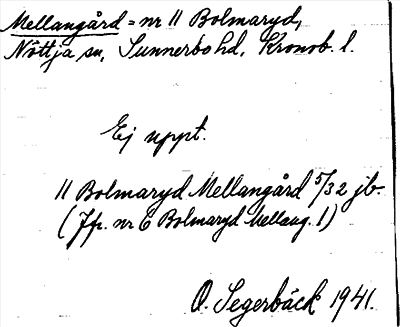 Mellangård = nr 11 Bolmaryd,
Nöttja sn, Sunnerbo hd, Kronob. l.
Ej uppt.
11 Bolmaryd Mellangård 5/32 jb.
(Jfr. nr 6 Bolmaryd Mellang. 1)
O. Segerbäck 1941.